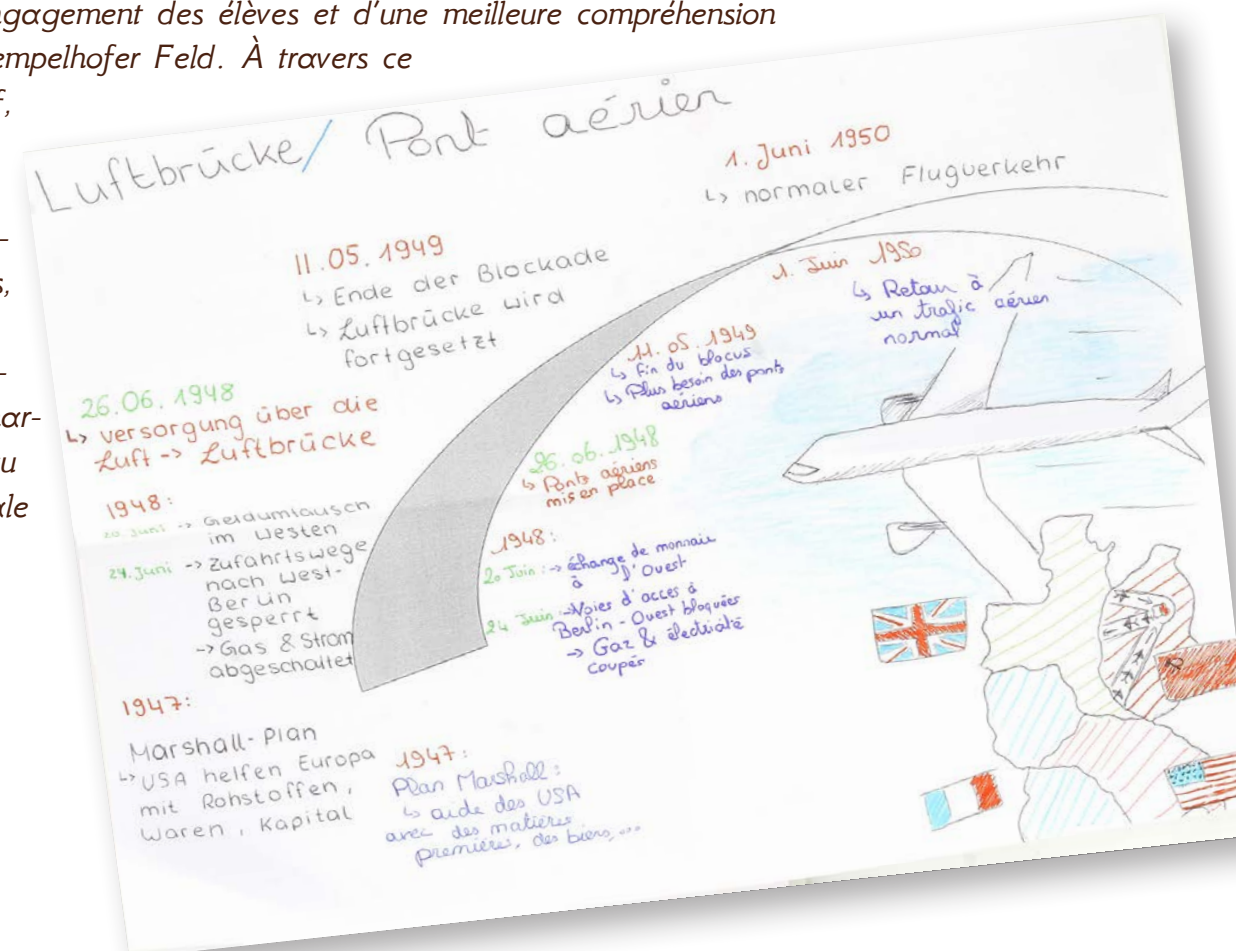 gagement des élèves et d'une meilleure compréhension
empelhofer Feld. À travers ce
f,
–
s,
–
ar-
u
ale
Luftbrücke/ Pont aérien
1. Juni 1950
↳ normaler Flugverkehr
11.05.1949
↳ Ende der Blockade
↳ Luftbrücke wird
fortgesetzt
26.06.1948
↳ versorgung über die
Luft -> Luftbrücke
1948:
20. Juni -> Geldumtausch
im Westen
24. Juni -> Zufahrtswege
nach West-
Berlin
gesperrt
-> Gas & Strom
abgeschaltet
1947:
Marshall-Plan
↳ USA helfen Europa
mit Rohstoffen,
Waren, Kapital
1. Juin 1950
↳ Retour à
un trafic aérien
normal
11.05.1949
↳ Fin du blocus
↳ Plus besoin des ponts
aériens
26.06.1948
↳ Ponts aériens
mis en place
1948:
20 Juin: -> échange de monnaie
à l'Ouest
24 Juin: -> Voies d'acces à
Berlin-Ouest bloquées
-> Gaz & électricité
coupés
1947:
Plan Marshall:
↳ aide des USA
avec des matières
premières, des biens, ...